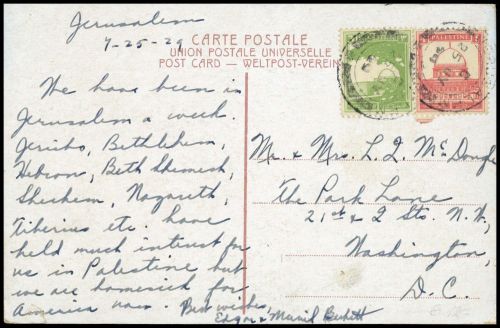 Jerusalem
7-25-29
CARTE POSTALE
UNION POSTALE UNIVERSELLE
POST CARD — WELTPOST-VEREIN
PALESTINE
We have been in
Jerusalem a week.
Jericho, Bethlehem,
Hebron, Beth Shemesh,
Shechem, Nazareth,
Tiberius etc. have
held much interest for
us in Palestine but
we are homesick for
America now. Best wishes,
Edgar & Muriel
Mr. & Mrs. L. Z.
The Park Lane
21st & I Sts. N.W.
Washington,
D.C.